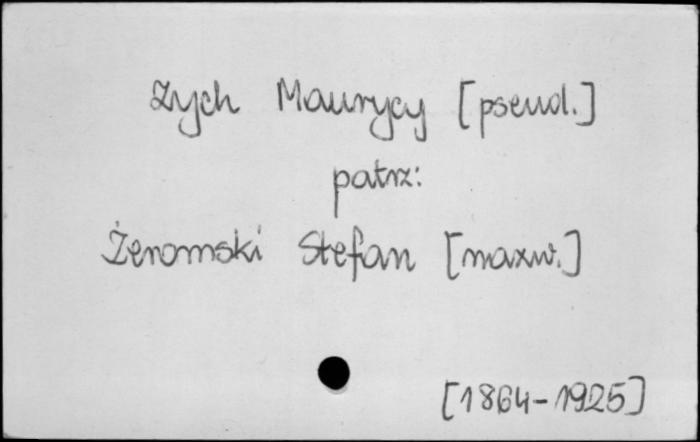 Zych Maurycy [pseud.]
patrz:
Żeromski Stefan [nazw.]
[1864-1925]